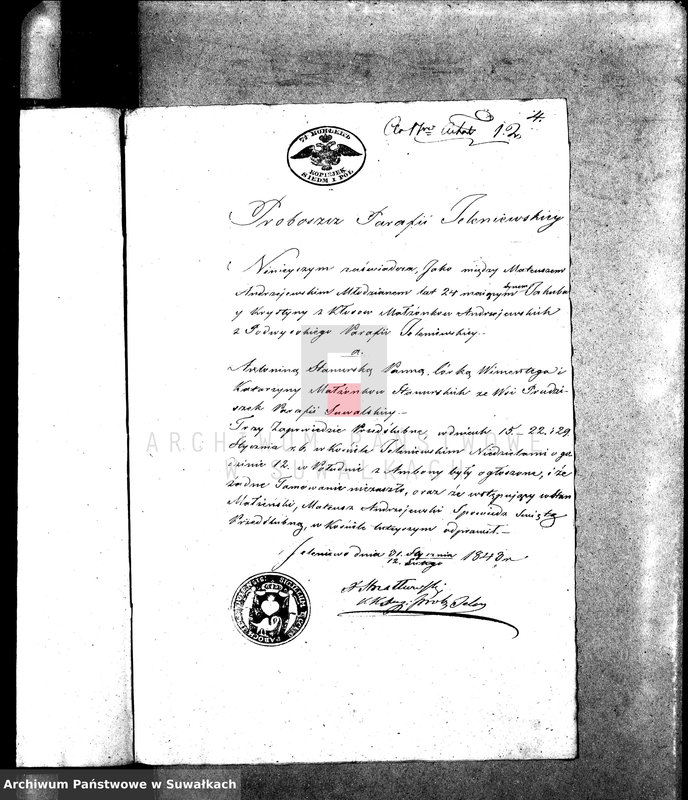 4.
Do Nru 12
7½ КОПѢЕКЪ
KOPIJEK
SIEDM I PÓŁ
Proboszcz Parafii Jeleniewskiey
Ninieyszym zaświadcza, Jako między Mateuszem
Andrzejewskim Młodzianem lat 24 maiącym synem Jakuba
y Krystyny z Kłosów Małżonków Andrzejewskich
z Podwysokiego Parafii Jeleniewskiey.
a.
Antoniną Staniurską Panną, Córką Wincentego i
Katarzyny Małżonków Staniurskich ze Wsi Prudzi-
szek Parafii Suwalskiey.
Trzy Zapowiedzie Przedślubne, w dniach 15. 22. i 29
Stycznia r. b. w Kościele Jeleniewskim Niedzielami o go-
dzinie 12. w Południe z Ambony były ogłoszone, i że
żadne Tamowanie niezaszło, oraz że wstępujący w stan
Małżeński, Mateusz Andrzejewski Spowiedź Świętą
Przedślubną, w Kościele tuteyszym odprawił.
Jeleniewo dnia 31. Stycznia 1843 r
12. Lutego
ARCHIWUM PAŃSTWOWE
W SUWAŁKACH
Archiwum Państwowe w Suwałkach